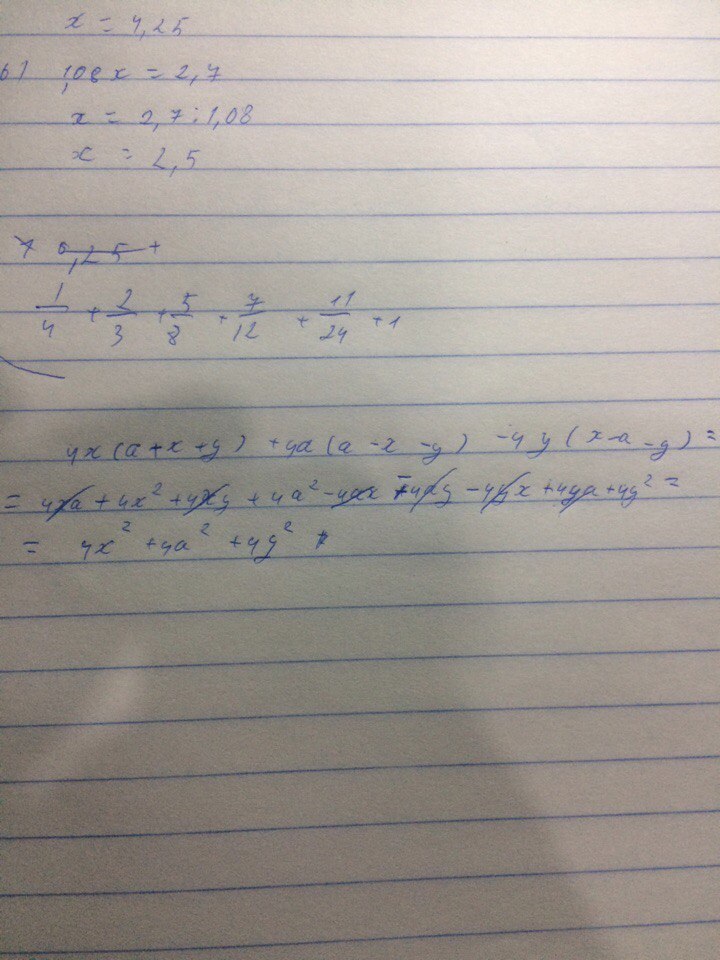 x = 4,25
b) 1,08 x = 2,7
x = 2,7 : 1,08
x = 2,5
7 0,25 +
1/4 + 2/3 + 5/8 + 7/12 + 11/24 + 1
4x (a + x + y) + 4a (a - x - y) - 4y (x - a - y) =
= 4xa + 4x² + 4xy + 4a² - 4ax - 4ay - 4yx + 4ya + 4y² =
= 4x² + 4a² + 4y²